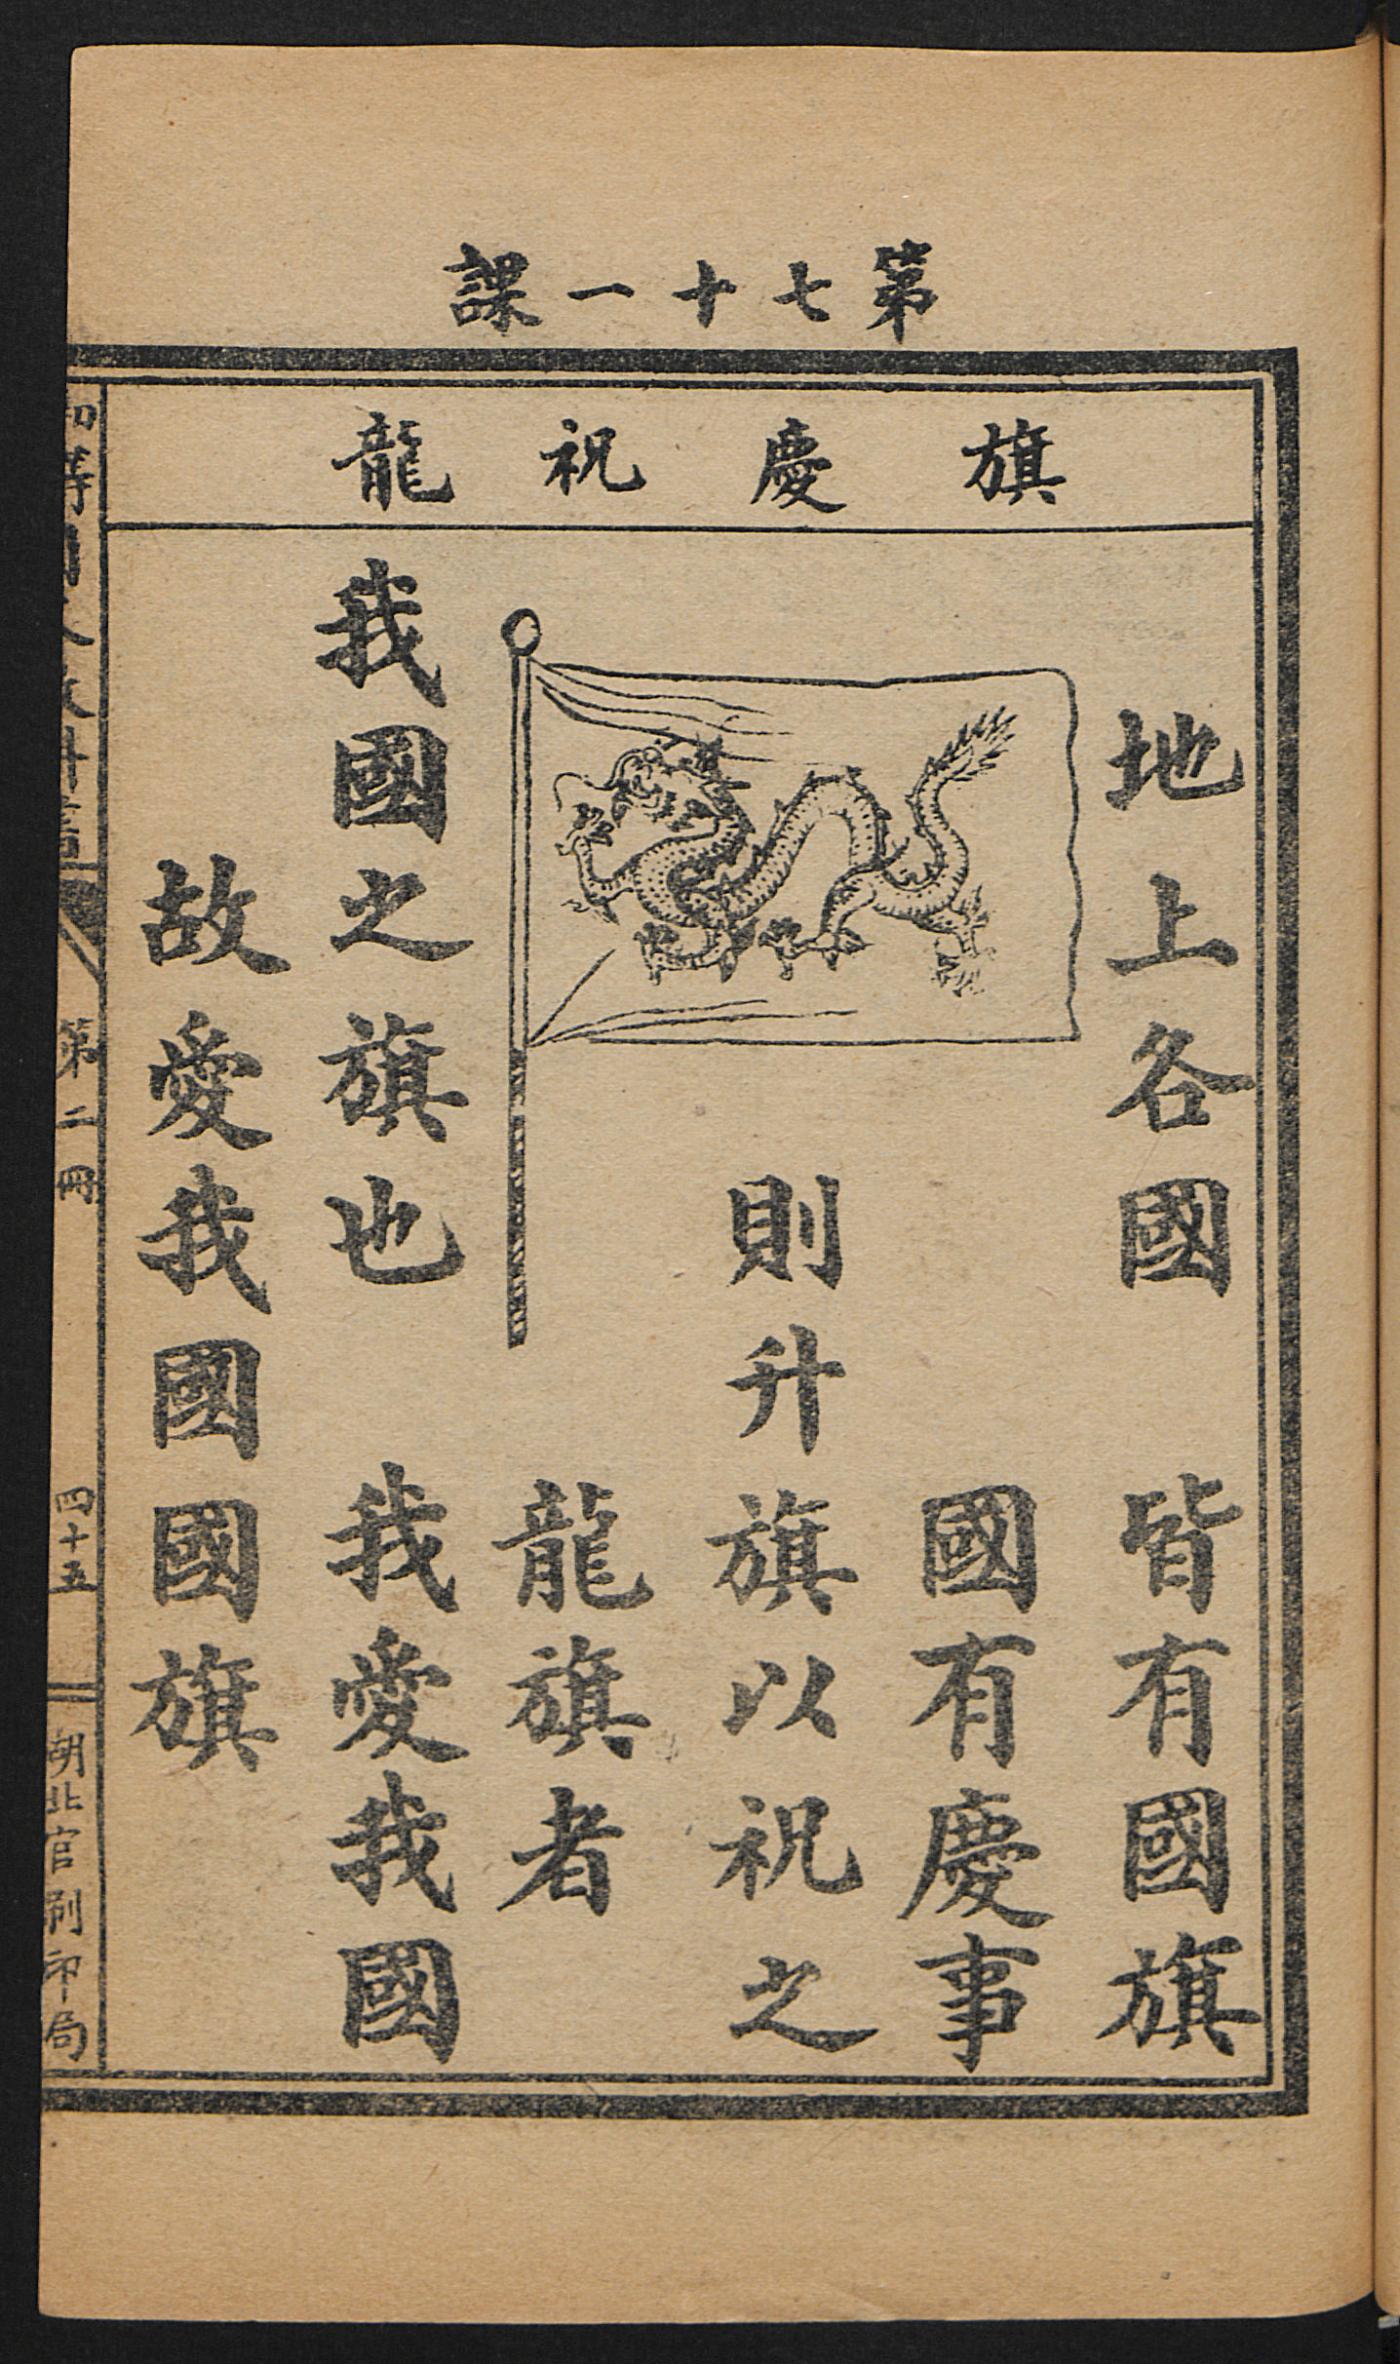 第七十一課
旗慶祝龍
地上各國　皆有國旗
國有慶事
則升旗以祝之
龍旗者
我國之旗也　我愛我國
故愛我國國旗
第二冊
四十五
湖北官刷印局